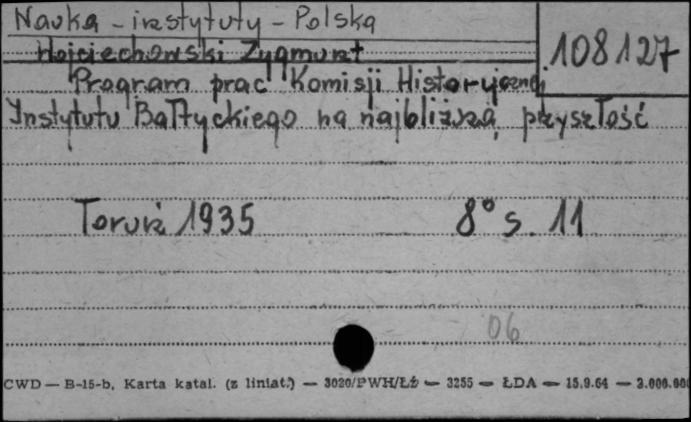 Nauka - instytuty - Polska
108127
Wojciechowski Zygmunt
Program prac Komisji Historycznej
Instytutu Bałtyckiego na najbliższą przyszłość
Toruń 1935 8° s. 11
06
CWD — B-15-b, Karta katal. (z liniat.) — 3020/PWH/Łż — 3255 — ŁDA — 15.9.64 — 3.000.000